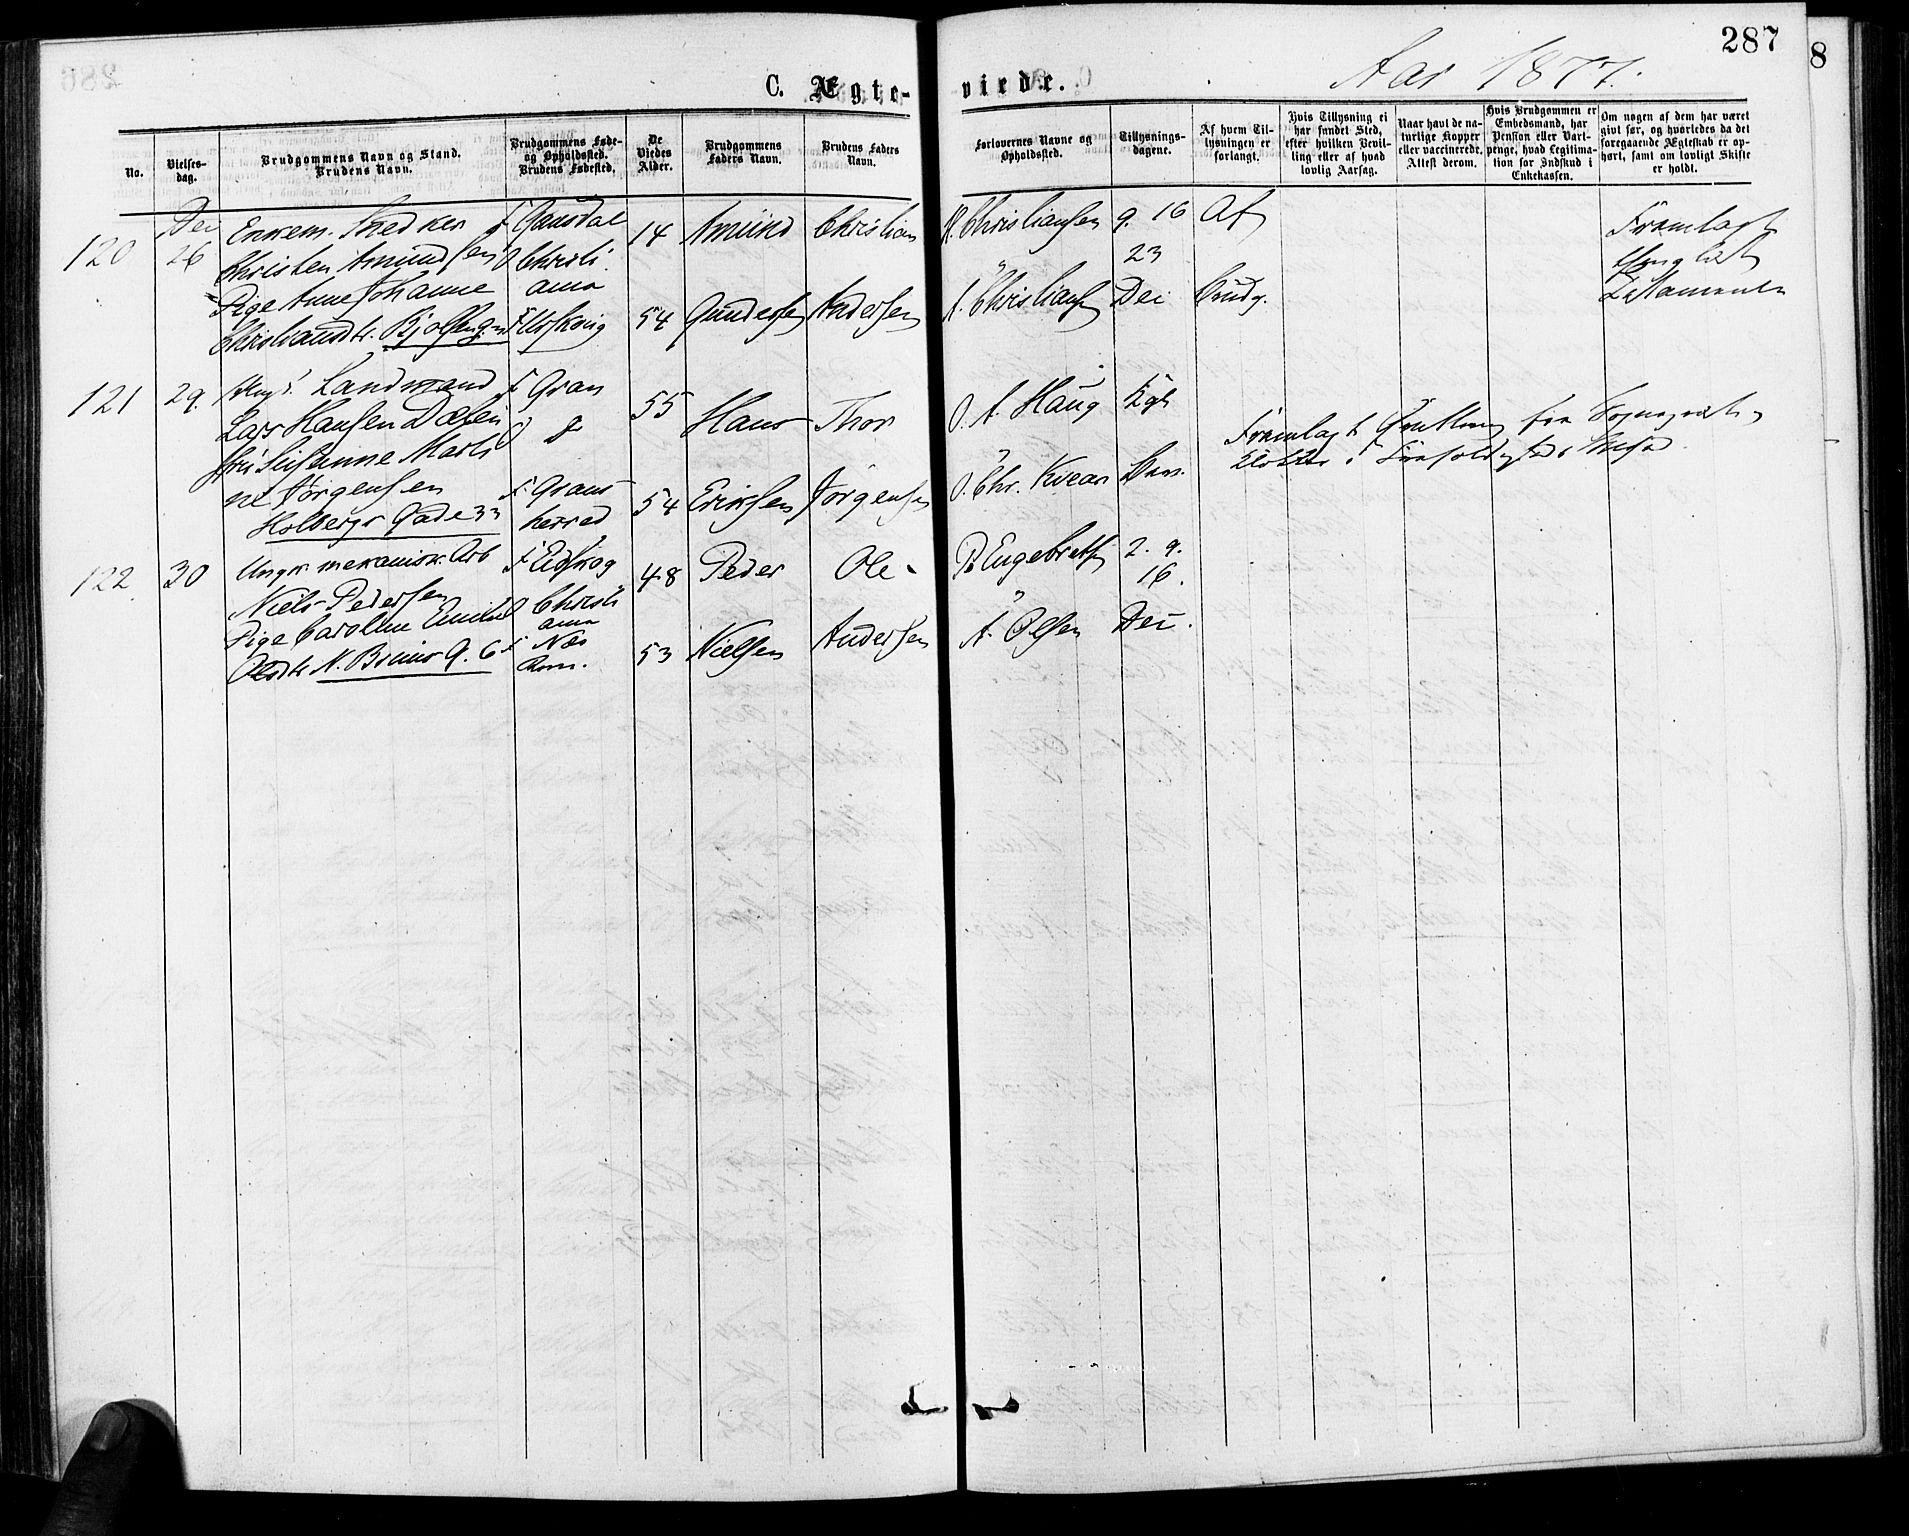 287
8
Aar 1877.
C. Ægte-
viede.
No.
Vielses-
dag.
Brudgommens Navn og Stand.
Brudens Navn.
Brudgommens Føde-
og Opholdssted.
Brudens Fødested.
De
Viedes
Alder.
Brudgommens
Faders Navn.
Brudens Faders
Navn.
Forlovernes Navne og
Opholdssted.
Tillysnings-
dagene.
Af hvem Til-
lysningen er
forlangt.
Hvis Tillysning ei
har fundet Sted,
efter hvilken Bevil-
ling eller af hvad
lovlig Aarsag.
Naar havt de na-
turlige Kopper
eller vaccinerede.
Attest derom.
Hvis Brudgommen er
Embedsmand, har
Pension eller Vart-
penge, hvad Legitima-
tion for Indskud i
Enkekassen.
Om nogen af dem har været
givt før, og hvorledes da det
foregaaende Ægteskab er op-
hørt, samt om lovligt Skifte
er holdt.
120
26
Enkem. Snedker
Christen Amundsen
Pige Anne Johanne
Christiansdtr.
F Gausdal
O Christi
ania
F
14
54
Amund
Gundersen
Christian
Andersen
Christiansen
A. Christiansen
9. 16
23
Dec
Af
Brudg.
Fremlagt
Testamente
121
29.
Ungk. Landmand
Lars Hansen Dælen
Marti
ne Jørgensen
Holbergs Gade 33
F Gran
O
F. Grans
herred
55
54
Hans
Eriksen
Thor
Jørgensen
O. A. Haug
O. Chr. Kvearn
Kgl
Fremlagt Qvittering fra Sogneprest
122
30
Ungk. mekanisk. Arb
Niels Pedersen
Pige Caroline Emilie
Olsdtr N. Bruns G. 6
F Eidskog
O Christi
ania
F Næs
Rom.
48
53
Peder
Nielsen
Ole
Andersen
P. Engebretsen
A. Olsen
2. 9.
16.
Dec.